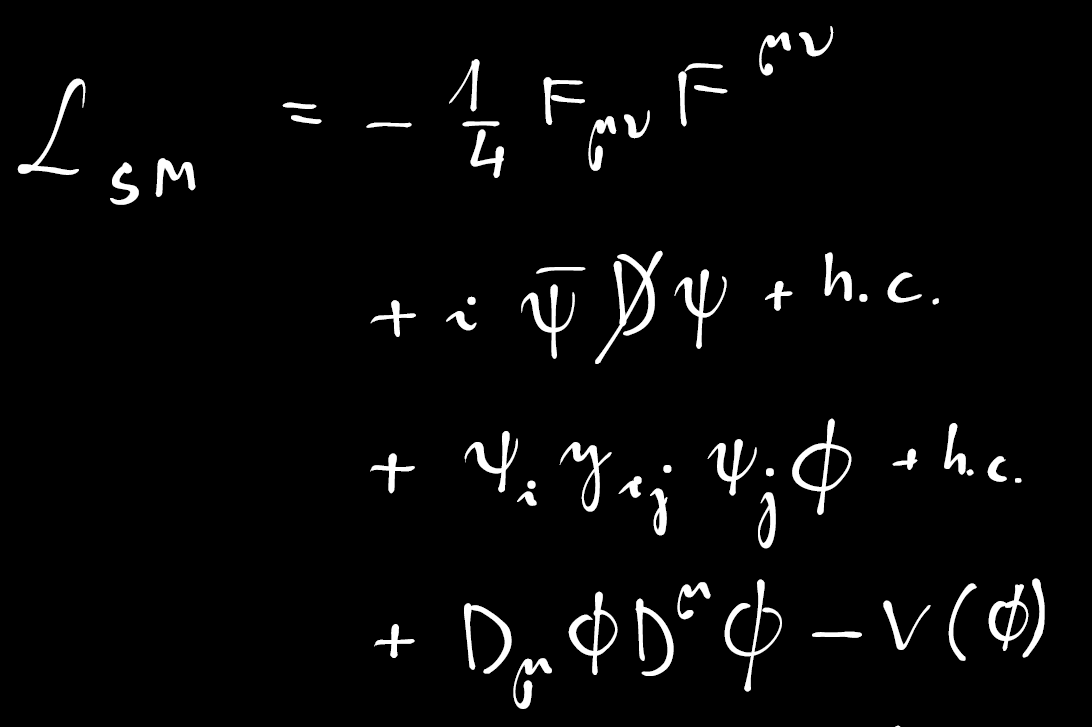 ℒ_SM = − 1/4 F_μν F^μν
+ i ψ̄ D̸ ψ + h.c.
+ ψ_i y_ij ψ_j ϕ + h.c.
+ D_μ ϕ D^μ ϕ − V(ϕ)